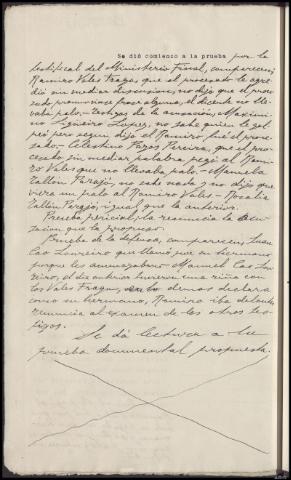 Se dió comienzo a la prueba por la
testifical del Ministerio Fiscal, compareció
Ramiro Vales Fraga, que el procesado le agre-
dió sin mediar discusiones, no dijo que el proce-
sado pronunciase frase alguna, el dicente no lle-
vaba palo.- Testigos de la acusación, Maximi-
no Ligueiro Lopez, no sabe quien le gol-
peó pero segun dijo el Ramiro fué el proce-
sado.- Celestino Pazos Pereira, que el pro-
cesado, sin mediar palabra, pegó al Rami-
ro Vales que no llevaba palo.- Manuela
Tallón Parajó, no sabe nada y no dijo que
viera un palo al Ramiro Vales.- Rosalia
Tallón Parajó, igual que la anterior.
Prueba pericial, la renuncia la acu-
sacion que la propuso.
Prueba de la defensa, comparecen, Juan
Cao Loureiro que llamó por su hermano
porque les amenazaban. Manuel Cao Lou-
reiro, el dia anterior hubiera una riña con
los Vales Fraga, en lo demas declara
como su hermano, Ramiro iba delante,
renuncia al examen de los otros tes-
tigos.
Se dá lectura a la
prueba documental propuesta.